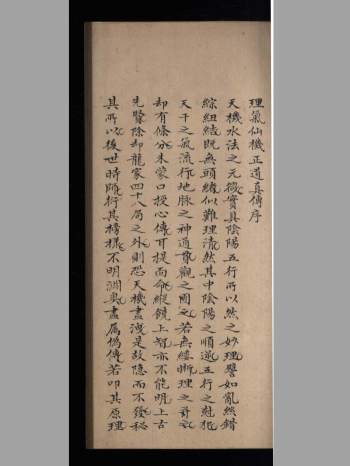 理氣仙機正道真傳序
天機水法之元微實具陰陽五行所以然之妙理譬如亂絲錯
綜紐結既無頭緒似難理清然其中陰陽之順逆五行之尅犯
天干之氣流行地脉之神通貫觀之國之若無縷晰理之
却有條分未蒙口授心傳耳提面命縱饒上智亦不能明上古
先賢除却龍家四十八局之外則恐天機盡洩是故隱而不發秘
其所以後世時師衍其樣不明淵奥盡屬偽傳若叩其原理